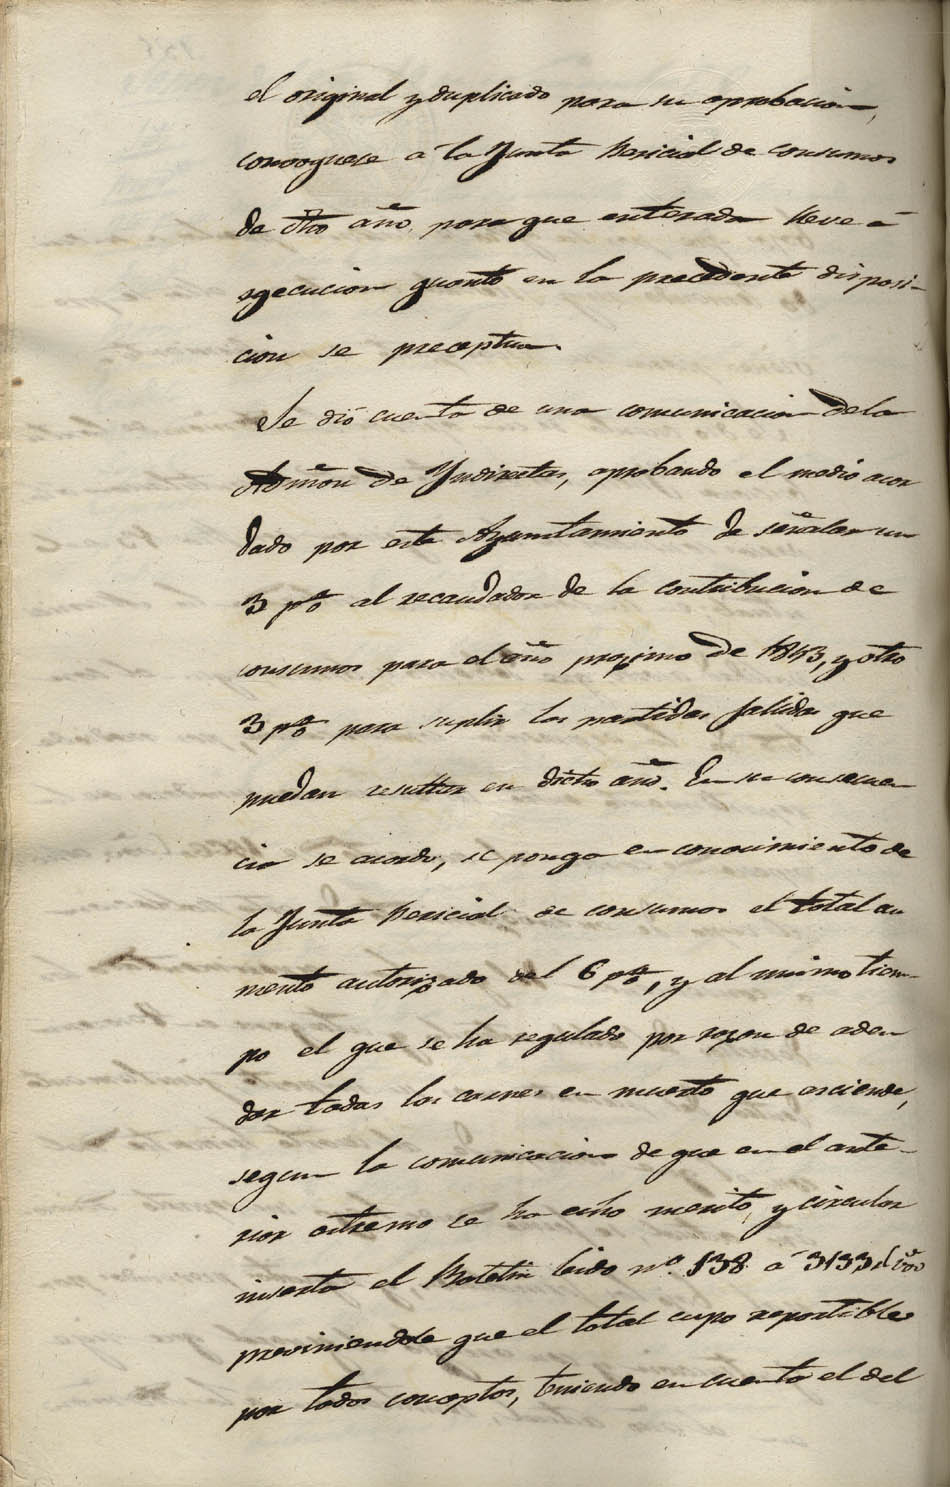 el original y duplicado para su aprobacion,
convoquese a la Junta Pericial de consumos
de dho año, para que enterada lleve á
egecucion quanto en la precedente disposi-
cion se preceptua.
Se dió cuenta de una comunicacion dela
Admon de Yndirectas, aprobando el medio acor
dado por este Ayuntamiento de señalar un
3 p% al recaudador de la contribucion de
consumos para el año proximo de 1893, y otro
3 p% para suplir las partidas fallidas que
puedan resultar en dicho año. En su consecuen
cia se acordo, se ponga en conocimiento de
la Junta Pericial de consumos el total au
mento autorizado del 6 p%, y al mismo tiem-
po el que se ha regulado por razon de aden
dar todas las carnes en muerto que asciende,
segun la comunicacion de que en el ante-
rior estremo se ha echo merito, y circular
inserta el Boletin leido nº 138 á 3133
previniendole que el total cupo repartible
por todos conceptos, teniendo en cuenta el del